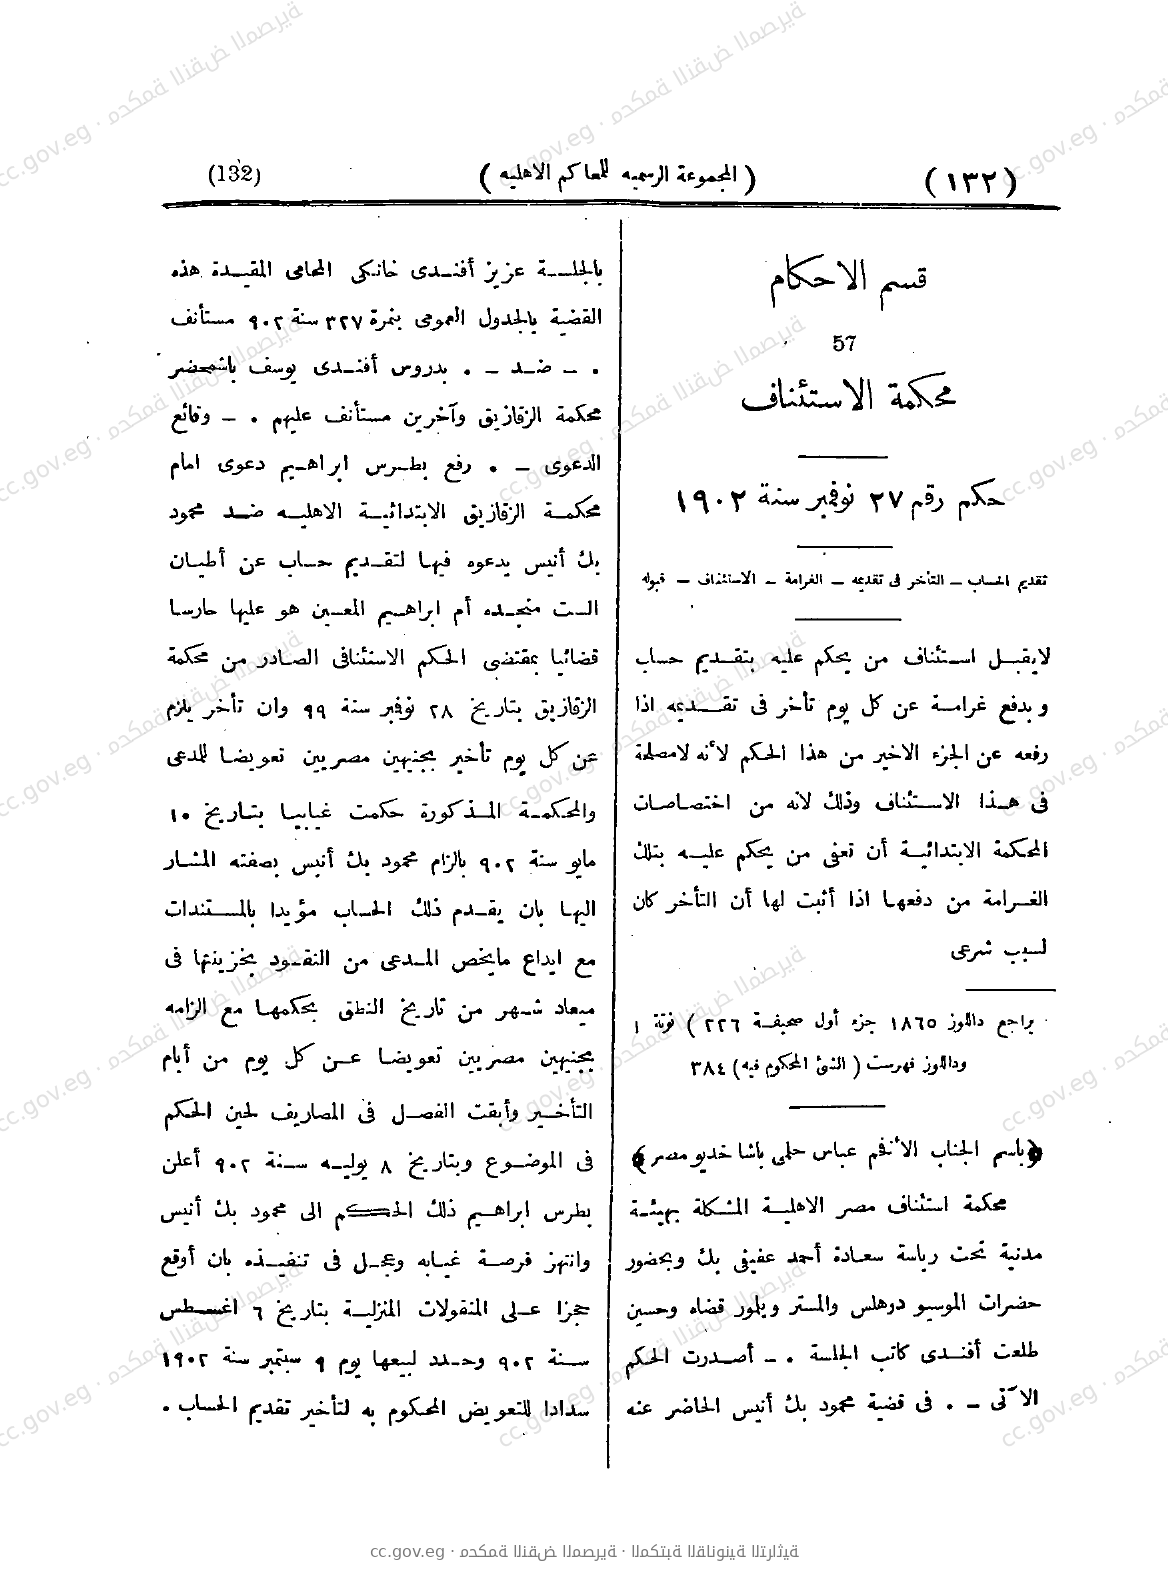 (١٣٢)
(المجموعة الرسمية للمحاكم الاهليه)
(132)
قسم الاحكام
57
محكمة الاستئناف
حكم رقم ٢٧ نوفمبر سنة ١٩٠٢
تقديم الحساب ــ التأخر فى تقديمه ــ الغرامة ــ الاستئناف ــ قبوله
لايقبل استئناف من يحكم عليه بتقديم حساب
وبدفع غرامة عن كل يوم تأخر فى تقديمه اذا
رفعه عن الجزء الاخير من هذا الحكم لأنه لامصلحة
فى هذا الاستئناف وذلك لانه من اختصاصات
المحكمة الابتدائية أن تعفى من يحكم عليه بتلك
الغرامة من دفعها اذا أثبت لها أن التأخر كان
لسبب شرعى
يراجع داللوز ١٨٦٥ جزء أول صحيفة ٢٢٦ ) نوتة ١
وداللوز فهرست ( الشئ المحكوم فيه) ٣٨٤
﴿باسم الجناب الأفخم عباس حلمى باشا خديو مصر﴾
محكمة استئناف مصر الاهلية المشكلة بهيئة
مدنية تحت رياسة سعادة أحمد عفيفى بك وبحضور
حضرات الموسيو دوهلس والمستر ويلمور قضاه وحسين
طلعت أفندى كاتب الجلسة . ــ أصدرت الحكم
الآتى ــ . فى قضية محمود بك أنيس الحاضر عنه
بالجلسة عزيز أفندى خانكى المحامى المقيدة هذه
القضية بالجدول العمومى بنمرة ٣٢٧ سنة ٩٠٢ مستأنف
. ــ ضد ــ . بدروس أفندى يوسف باشمحضر
محكمة الزقازيق وآخرين مستأنف عليهم . ــ وقائع
الدعوى ــ . رفع بطرس ابراهيم دعوى امام
محكمة الزقازيق الابتدائية الاهليه ضد محمود
بك أنيس يدعوه فيها لتقديم حساب عن أطيان
الست منجده أم ابراهيم المعين هو عليها حارسا
قضائيا بمقتضى الحكم الاستئنافى الصادر من محكمة
الزقازيق بتاريخ ٢٨ نوفمبر سنة ٩٩ وان تأخر يلزم
عن كل يوم تأخير بجنيهين مصريين تعويضا للمدعى
والمحكمة المذكورة حكمت غيابيا بتاريخ ١٠
مايو سنة ٩٠٢ بالزام محمود بك أنيس بصفته المشار
اليها بان يقدم ذلك الحساب مؤيدا بالمستندات
مع ايداع مايخص المدعى من النقود بخزينتها فى
ميعاد شهر من تاريخ النطق بحكمها مع الزامه
بجنيهين مصريين تعويضا عن كل يوم من أيام
التأخير وأبقت الفصل فى المصاريف لحين الحكم
فى الموضوع وبتاريخ ٨ يوليه سنة ٩٠٢ أعلن
بطرس ابراهيم ذلك الحكم الى محمود بك أنيس
وانتهز فرصة غيابه وعجل فى تنفيذه بان أوقع
حجزا على المنقولات المنزلية بتاريخ ٦ اغسطس
سنة ٩٠٢ وحدد لبيعها يوم ٩ سبتمبر سنة ١٩٠٢
سدادا للتعويض المحكوم به لتأخير تقديم الحساب .
cc.gov.eg · محكمة النقض المصرية · المكتبة القانونية التراثية